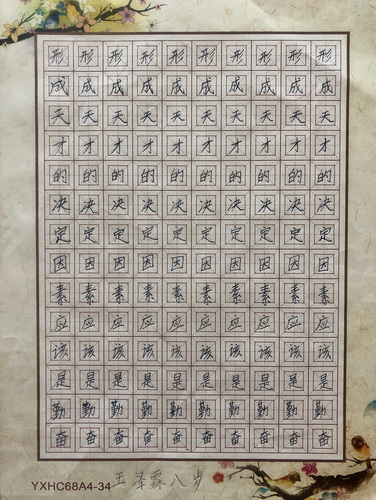 形形形形形形形形形形
成成成成成成成成成成
天天天天天天天天天天
才才才才才才才才才才
的的的的的的的的的的
决决决决决决决决决决
定定定定定定定定定定
因因因因因因因因因因
素素素素素素素素素素
应应应应应应应应应应
该该该该该该该该该该
是是是是是是是是是是
勤勤勤勤勤勤勤勤勤勤
奋奋奋奋奋奋奋奋奋奋
YXHC68A4-34 王泽霖八岁